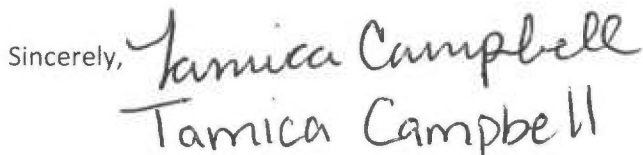 Sincerely, Tamica Campbell
Tamica Campbell